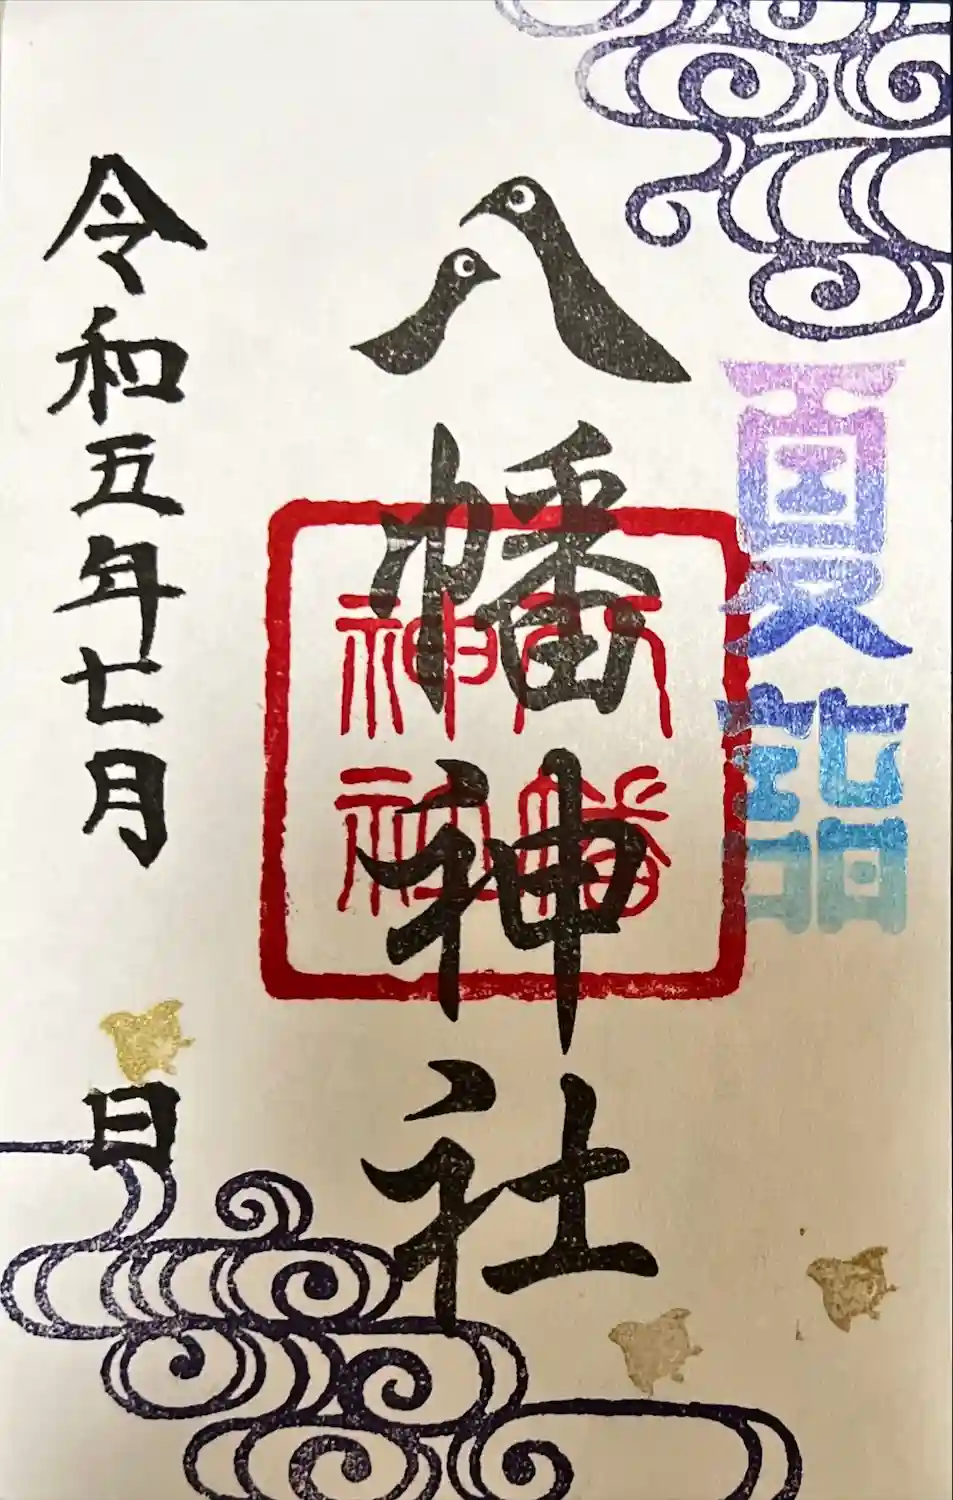 夏詣
八幡神社
八幡
神社
令和五年七月 日